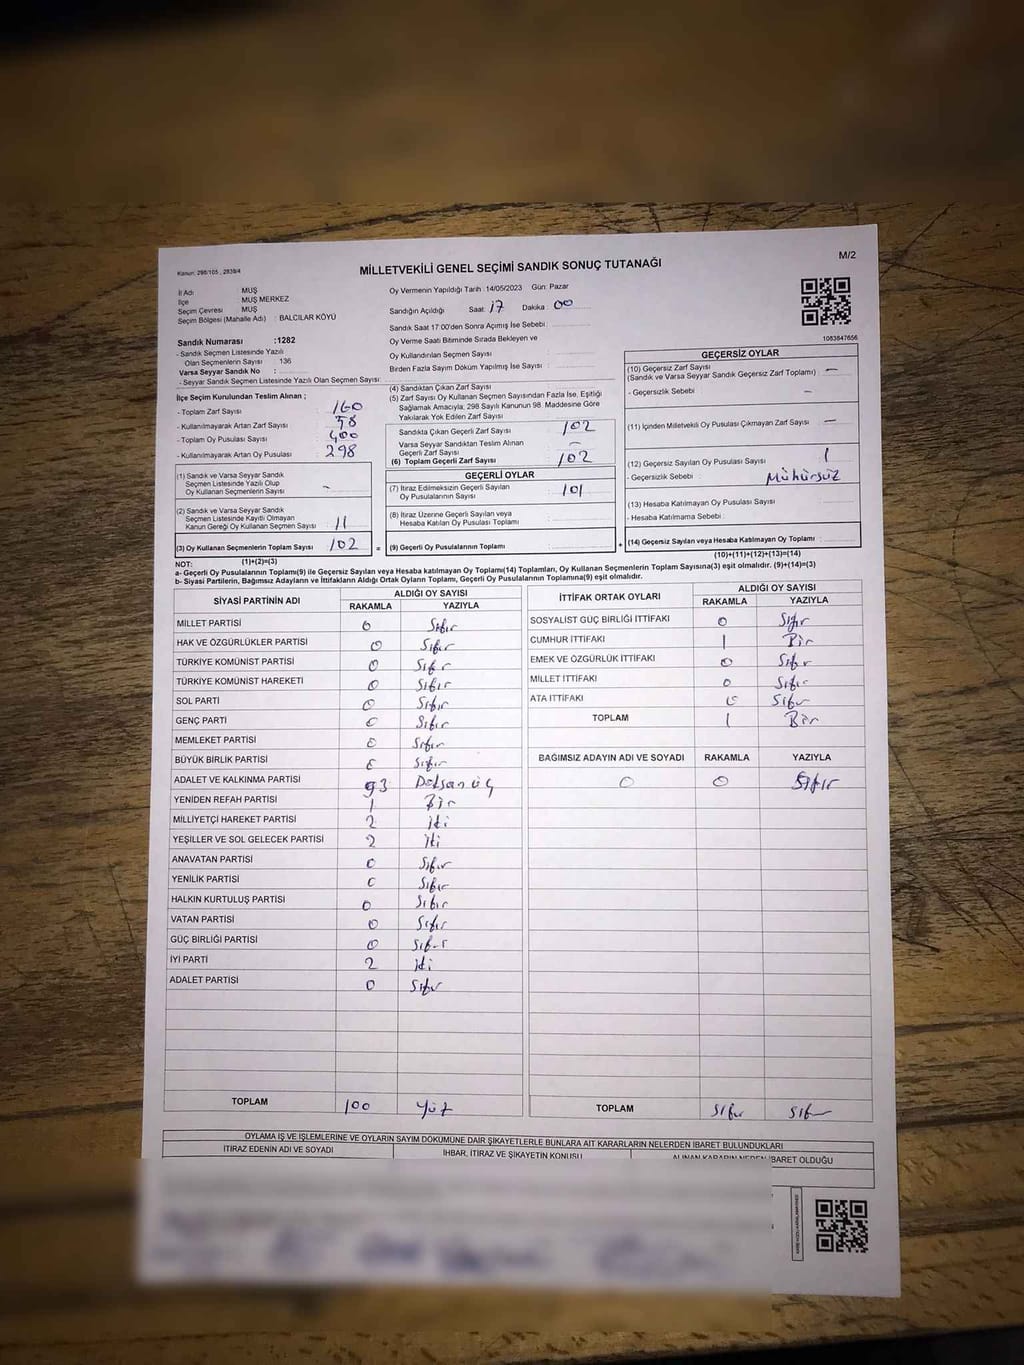 Kanun: 298/105 , 2839/4
M/2
MİLLETVEKİLİ GENEL SEÇİMİ SANDIK SONUÇ TUTANAĞI
İl Adı MUŞ
İlçe MUŞ MERKEZ
Seçim Çevresi MUŞ
Seçim Bölgesi (Mahalle Adı) : BALCILAR KÖYÜ
Sandık Numarası :1282
- Sandık Seçmen Listesinde Yazılı
Olan Seçmenlerin Sayısı : 136
Varsa Seyyar Sandık No :
- Seyyar Sandık Seçmen Listesinde Yazılı Olan Seçmen Sayısı:
İlçe Seçim Kurulundan Teslim Alınan ;
- Toplam Zarf Sayısı : 160
- Kullanılmayarak Artan Zarf Sayısı : 58
- Toplam Oy Pusulası Sayısı : 400
- Kullanılmayarak Artan Oy Pusulası : 298
(1) Sandık ve Varsa Seyyar Sandık
Seçmen Listesinde Yazılı Olup
Oy Kullanan Seçmenlerin Sayısı : -
(2) Sandık ve Varsa Seyyar Sandık
Seçmen Listesinde Kayıtlı Olmayan
Kanun Gereği Oy Kullanan Seçmen Sayısı : 11
(3) Oy Kullanan Seçmenlerin Toplam Sayısı : 102
(1)+(2)=(3)
Oy Vermenin Yapıldığı Tarih :14/05/2023 Gün: Pazar
Sandığın Açıldığı Saat: 17 Dakika : 00
Sandık Saat 17:00'den Sonra Açımış İse Sebebi :
Oy Verme Saati Bitiminde Sırada Bekleyen ve
Oy Kullandırılan Seçmen Sayısı :
Birden Fazla Sayım Döküm Yapılmış İse Sayısı :
(4) Sandıktan Çıkan Zarf Sayısı :
(5) Zarf Sayısı Oy Kullanan Seçmen Sayısından Fazla İse, Eşitliği
Sağlamak Amacıyla; 298 Sayılı Kanunun 98. Maddesine Göre
Yakılarak Yok Edilen Zarf Sayısı :
Sandıkta Çıkan Geçerli Zarf Sayısı : 102
Varsa Seyyar Sandıktan Teslim Alınan
Geçerli Zarf Sayısı : -
(6) Toplam Geçerli Zarf Sayısı : 102
GEÇERLİ OYLAR
(7) İtiraz Edilmeksizin Geçerli Sayılan
Oy Pusulalarının Sayısı : 101
(8) İtiraz Üzerine Geçerli Sayılan veya
Hesaba Katılan Oy Pusulası Toplamı :
= (9) Geçerli Oy Pusulalarının Toplamı :
1083847656
GEÇERSİZ OYLAR
(10) Geçersiz Zarf Sayısı :
(Sandık ve Varsa Seyyar Sandık Geçersiz Zarf Toplamı) -
- Geçersizlik Sebebi : -
(11) İçinden Milletvekili Oy Pusulası Çıkmayan Zarf Sayısı : -
(12) Geçersiz Sayılan Oy Pusulası Sayısı : 1
- Geçersizlik Sebebi : Mühürsüz
(13) Hesaba Katılmayan Oy Pusulası Sayısı :
- Hesaba Katılmama Sebebi :
+ (14) Geçersiz Sayılan veya Hesaba Katılmayan Oy Toplamı :
(10)+(11)+(12)+(13)=(14)
NOT:
a- Geçerli Oy Pusulalarının Toplamı(9) ile Geçersiz Sayılan veya Hesaba katılmayan Oy Toplamı(14) Toplamları, Oy Kullanan Seçmenlerin Toplam Sayısına(3) eşit olmalıdır. (9)+(14)=(3)
b- Siyasi Partilerin, Bağımsız Adayların ve İttifakların Aldığı Ortak Oyların Toplamı, Geçerli Oy Pusulalarının Toplamına(9) eşit olmalıdır.
SİYASİ PARTİNİN ADI
ALDIĞI OY SAYISI
RAKAMLA YAZIYLA
MİLLET PARTİSİ 0 Sıfır
HAK VE ÖZGÜRLÜKLER PARTİSİ 0 Sıfır
TÜRKİYE KOMÜNİST PARTİSİ 0 Sıfır
TÜRKİYE KOMÜNİST HAREKETİ 0 Sıfır
SOL PARTİ 0 Sıfır
GENÇ PARTİ 0 Sıfır
MEMLEKET PARTİSİ 0 Sıfır
BÜYÜK BİRLİK PARTİSİ 0 Sıfır
ADALET VE KALKINMA PARTİSİ 93 Doksan üç
YENİDEN REFAH PARTİSİ 1 Bir
MİLLİYETÇİ HAREKET PARTİSİ 2 iki
YEŞİLLER VE SOL GELECEK PARTİSİ 2 iki
ANAVATAN PARTİSİ 0 Sıfır
YENİLİK PARTİSİ 0 Sıfır
HALKIN KURTULUŞ PARTİSİ 0 Sıfır
VATAN PARTİSİ 0 Sıfır
GÜÇ BİRLİĞİ PARTİSİ 0 Sıfır
İYİ PARTİ 2 iki
ADALET PARTİSİ 0 Sıfır
TOPLAM 100 Yüz
İTTİFAK ORTAK OYLARI
ALDIĞI OY SAYISI
RAKAMLA YAZIYLA
SOSYALİST GÜÇ BİRLİĞİ İTTİFAKI 0 Sıfır
CUMHUR İTTİFAKI 1 Bir
EMEK VE ÖZGÜRLÜK İTTİFAKI 0 Sıfır
MİLLET İTTİFAKI 0 Sıfır
ATA İTTİFAKI 0 Sıfır
TOPLAM 1 Bir
BAĞIMSIZ ADAYIN ADI VE SOYADI RAKAMLA YAZIYLA
0 0 Sıfır
TOPLAM Sıfır Sıfır
OYLAMA İŞ VE İŞLEMLERİNE VE OYLARIN SAYIM DÖKÜMÜNE DAİR ŞİKAYETLERLE BUNLARA AİT KARARLARIN NELERDEN İBARET BULUNDUKLARI
İTİRAZ EDENİN ADI VE SOYADI İHBAR, İTİRAZ VE ŞİKAYETİN KONUSU ALINAN KARARIN NEDEN İBARET OLDUĞU